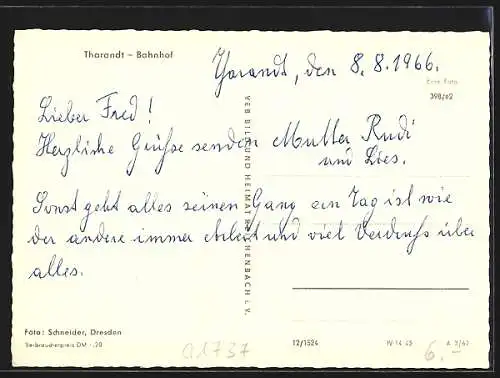 Tharandt – Bahnhof
Tharandt, den 8.8.1966.
Echt Foto
398/62
Lieber Fred!
Herzliche Grüße senden Mutter Rudi
und Lies.
Sonst geht alles seinen Gang ein Tag ist wie
der andere immer Arbeit und viel Verdruß über
alles.
VEB BILD UND HEIMAT REICHENBACH I. V.
Foto: Schneider, Dresden
Verbraucherpreis DM -,20
01737
12/1524
IV-14-45
A 2/62
6.-